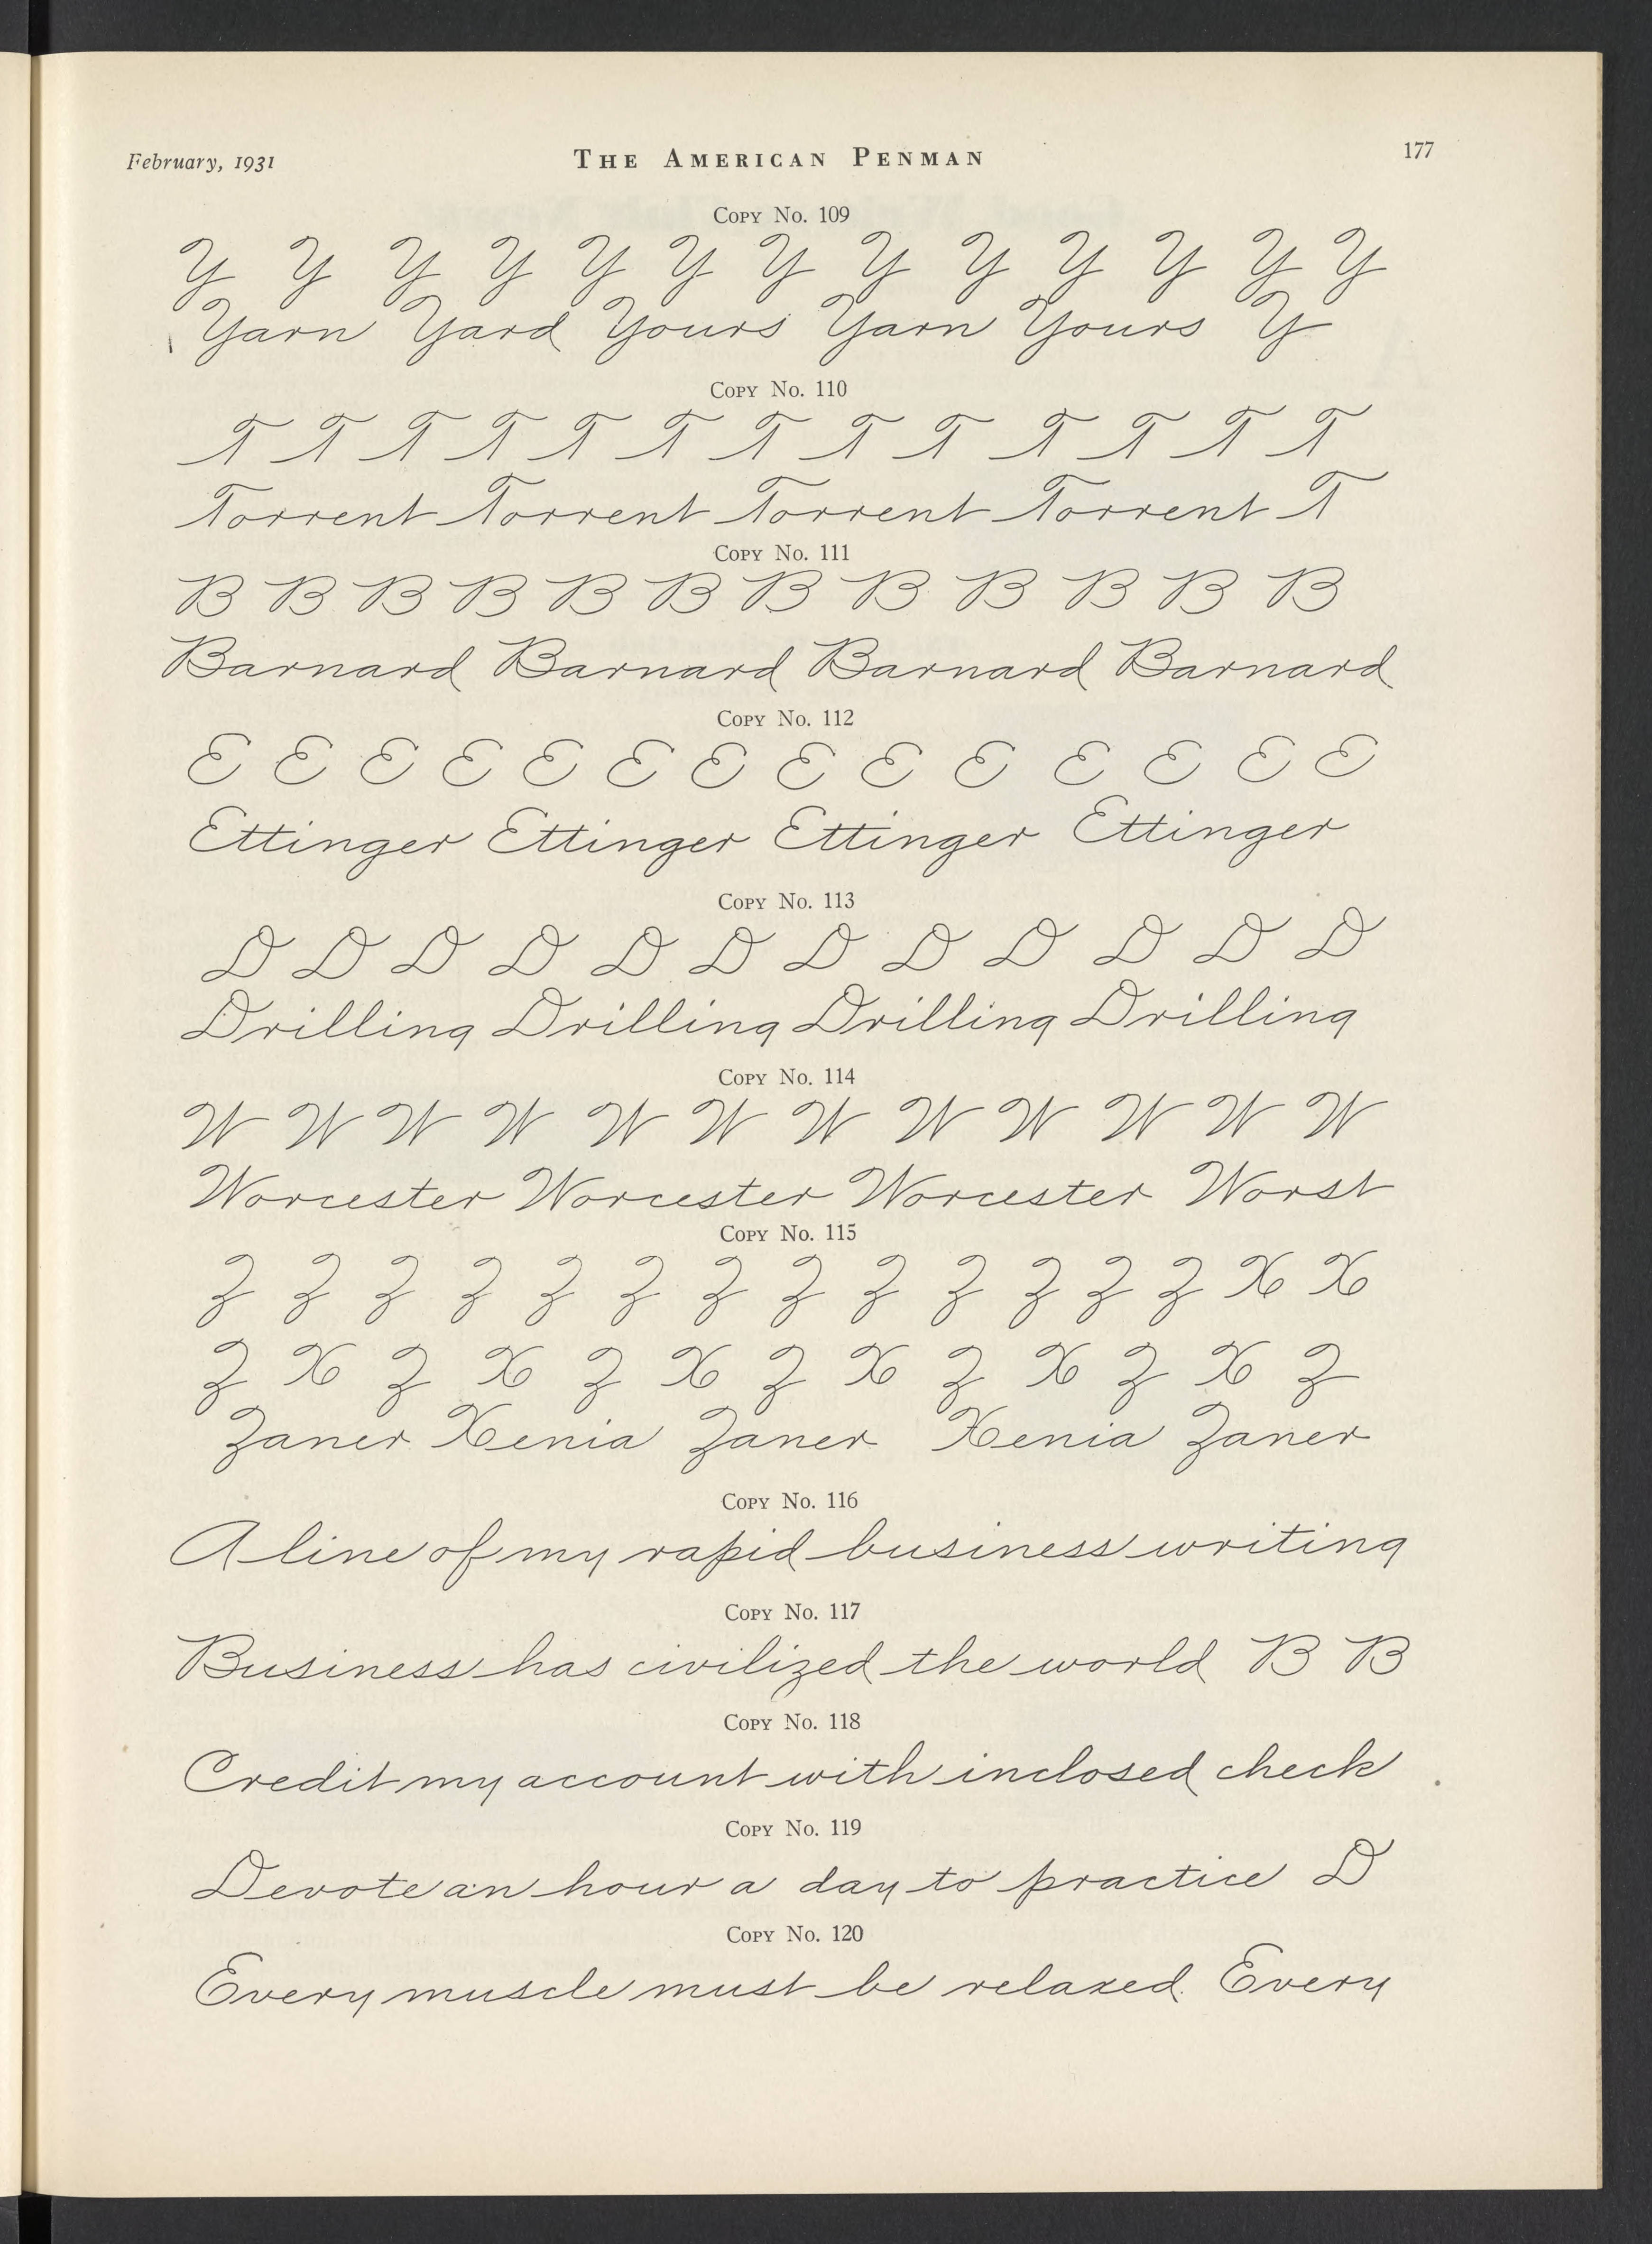 February, 1931 THE AMERICAN PENMAN 177
COPY NO. 109
Y Y Y Y Y Y Y Y Y Y Y Y Y
Yarn Yard Yours Yarn Yours Y
COPY NO. 110
T T T T T T T T T T T T T
Torrent Torrent Torrent Torrent T
COPY NO. 111
B B B B B B B B B B B B
Barnard Barnard Barnard Barnard
COPY NO. 112
E E E E E E E E E E E E E E
Ettinger Ettinger Ettinger Ettinger
COPY NO. 113
D D D D D D D D D D D D
Drilling Drilling Drilling Drilling
COPY NO. 114
W W W W W W W W W W W W
Worcester Worcester Worcester Worst
COPY NO. 115
Z Z Z Z Z Z Z Z Z Z Z Z Z X X
Z X Z X Z X Z X Z X Z X Z
Zaner Xenia Zaner Xenia Zaner
COPY NO. 116
A line of my rapid business writing
COPY NO. 117
Business has civilized the world B B
COPY NO. 118
Credit my account with inclosed check
COPY NO. 119
Devote an hour a day to practice D
COPY NO. 120
Every muscle must be relaxed. Every